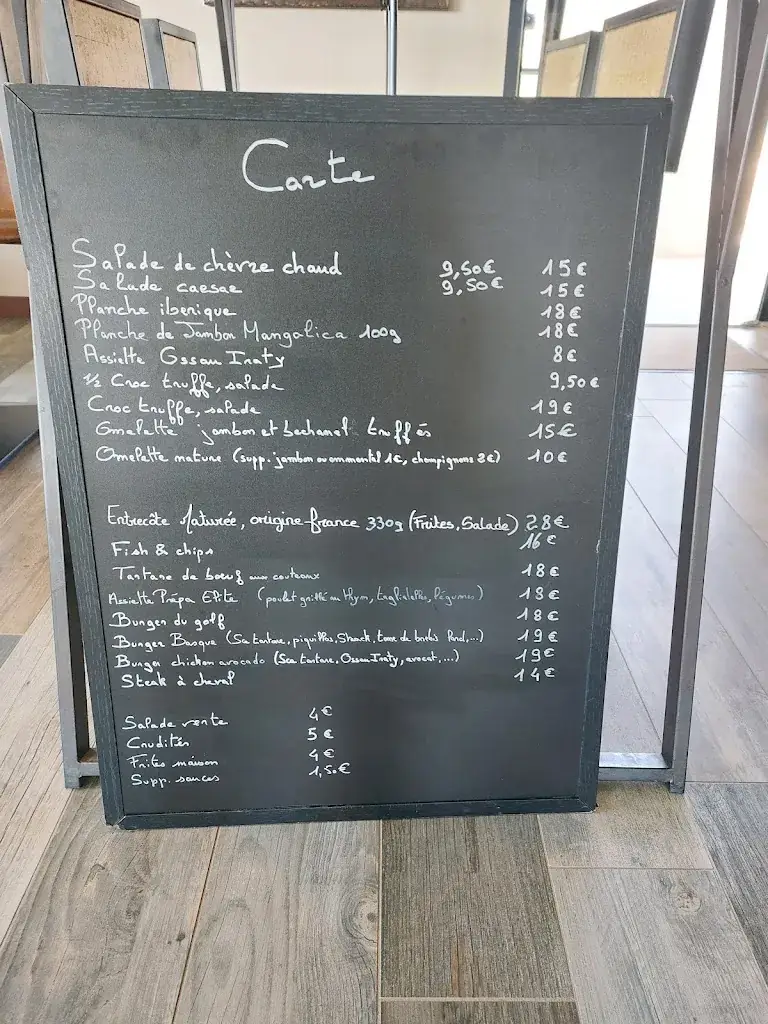 Carte
Salade de chèvre chaud 9,50€ 15€
Salade caesar 9,50€ 15€
Planche iberique 18€
Planche de Jambon Mangalica 100g 18€
Assiette Ossau Iraty 8€
½ Croc truffe, salade 9,50€
Croc truffe, salade 19€
Omelette jambon et bechamel truffés 15€
Omelette nature (supp. jambon ou emmental 1€, champignons 2€) 10€
Entrecôte Maturée, origine france 330g (Frites, Salade) 28€
Fish & chips 16€
Tartare de boeuf aux couteaux 18€
Assiette Prépa Elite (poulet grillé au thym, tagliatelles, légumes) 18€
Burger du golf 18€
Burger Basque (Sce tartare, piquillos, Steack, tome de brebis, ...) 19€
Burger chicken avocado (Sce tartare, Ossau Iraty, avocat, ...) 19€
Steak à cheval 14€
Salade verte 4€
Crudités 5€
Frites maison 4€
Supp. sauces 1,50€